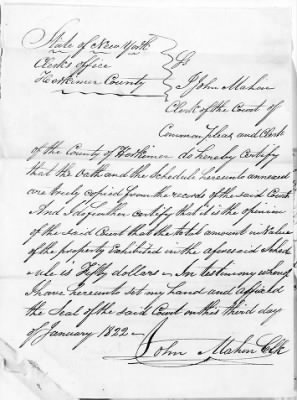 State of New York
Clerks office
Herkimer County
Ss
I John Mahon
Clerk of the Court of
Common pleas and Clerk
of the County of Herkimer do hereby certify
that the Oath and the Schedule hereunto annexed
are truly copied from the records of the said Court
And I do further certify that it is the opinion
of the said Court that the total amount in Value
of the property Exhibited in the aforesaid Sched
ule is Fifty dollars — In testimony whereof
I have hereunto set my hand and affixed
the Seal of the said Court on this third day
of January 1822 —
John Mahon Clk